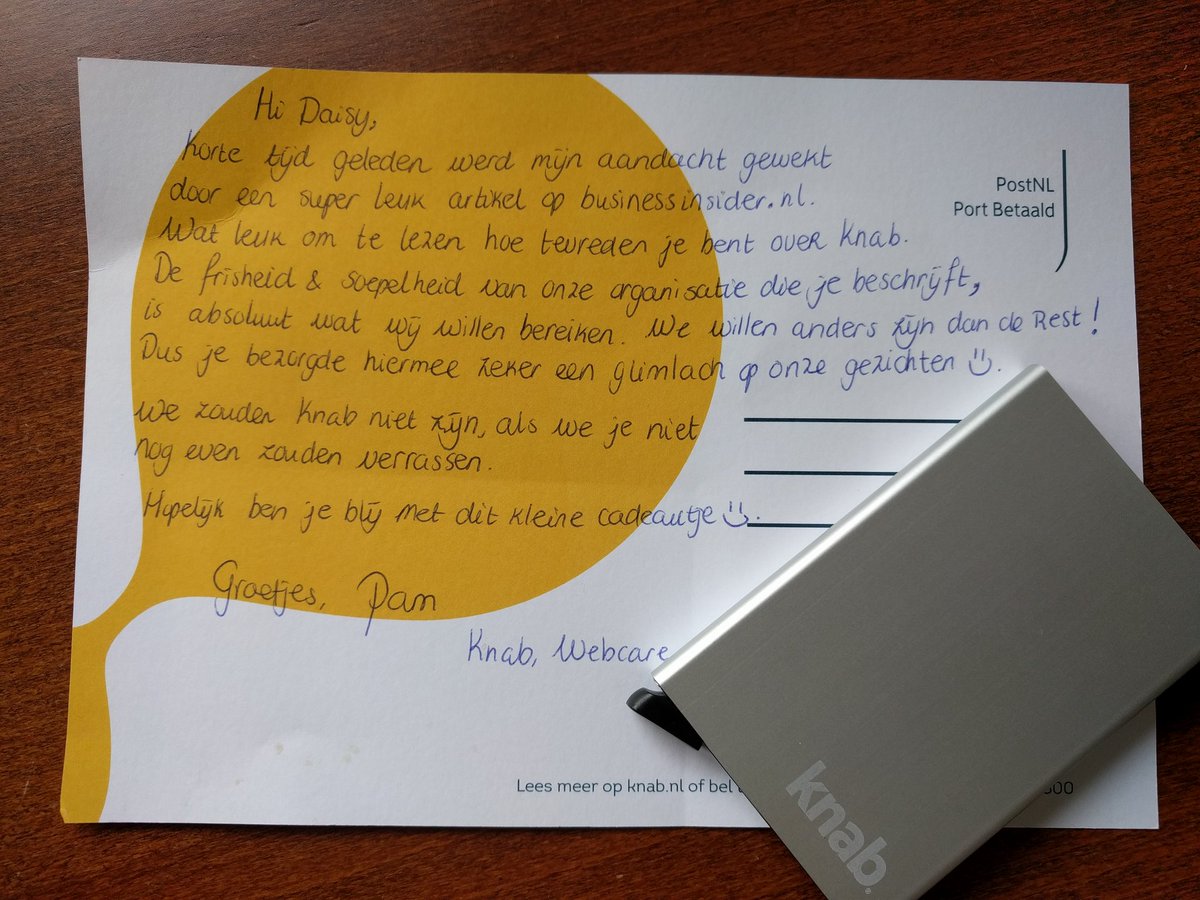 Hi Daisy,
Korte tijd geleden werd mijn aandacht gewekt
door een super leuk artikel op businessinsider.nl.
Wat leuk om te lezen hoe tevreden je bent over Knab.
De frisheid & soepelheid van onze organisatie die je beschrijft,
is absoluut wat wij willen bereiken. We willen anders zijn dan de Rest!
Dus je bezorgde hiermee zeker een glimlach op onze gezichten
We zouden Knab niet zijn, als we je niet
nog even zouden verrassen.
Hopelijk ben je blij met dit kleine cadeautje
Groetjes, Pam
Knab, Webcare
PostNL
Port Betaald
Lees meer op knab.nl of bel
knab.